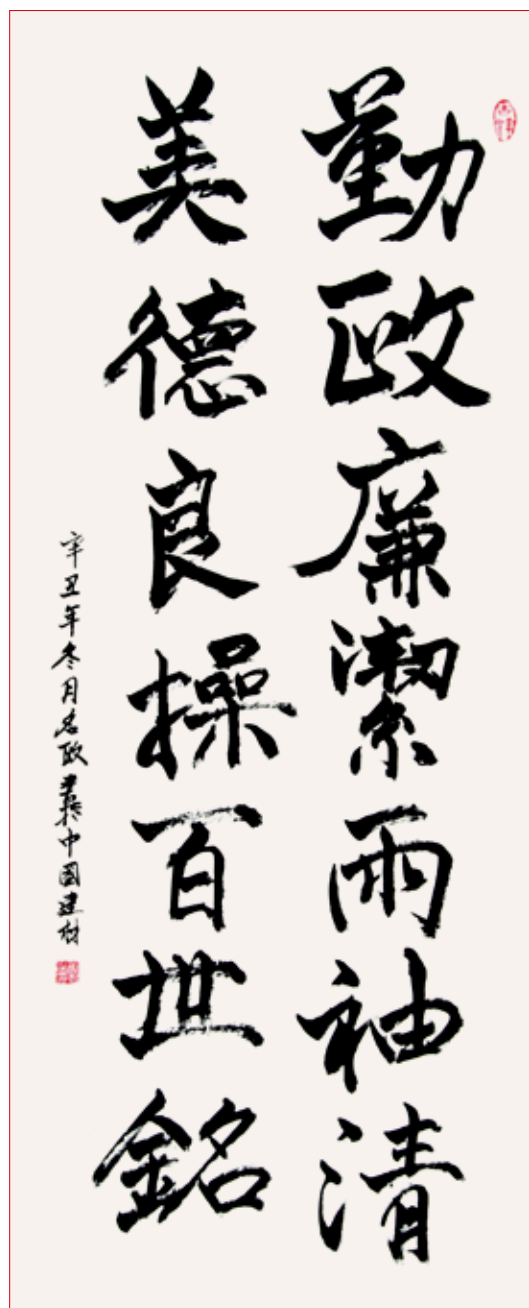 勤政廉潔兩袖清
美德良操百世銘
辛丑年冬月名政書於中國建材